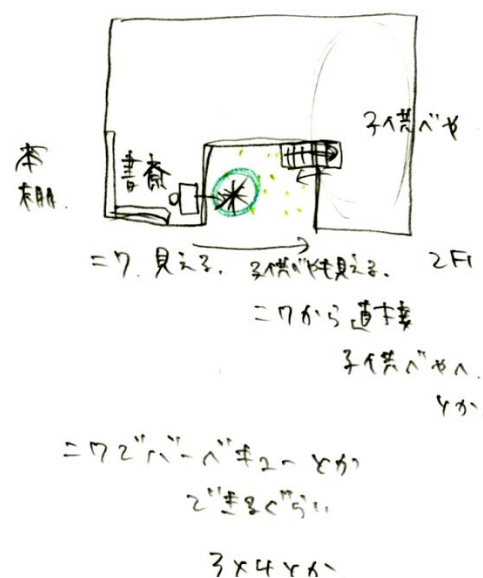 子供べや
本棚.
書斎
ニワ.見える.
子供べやも見える.
2F
ニワから直接
子供べやへ.
とか
ニワでバーベキューとか
できるぐらい
3×4とか